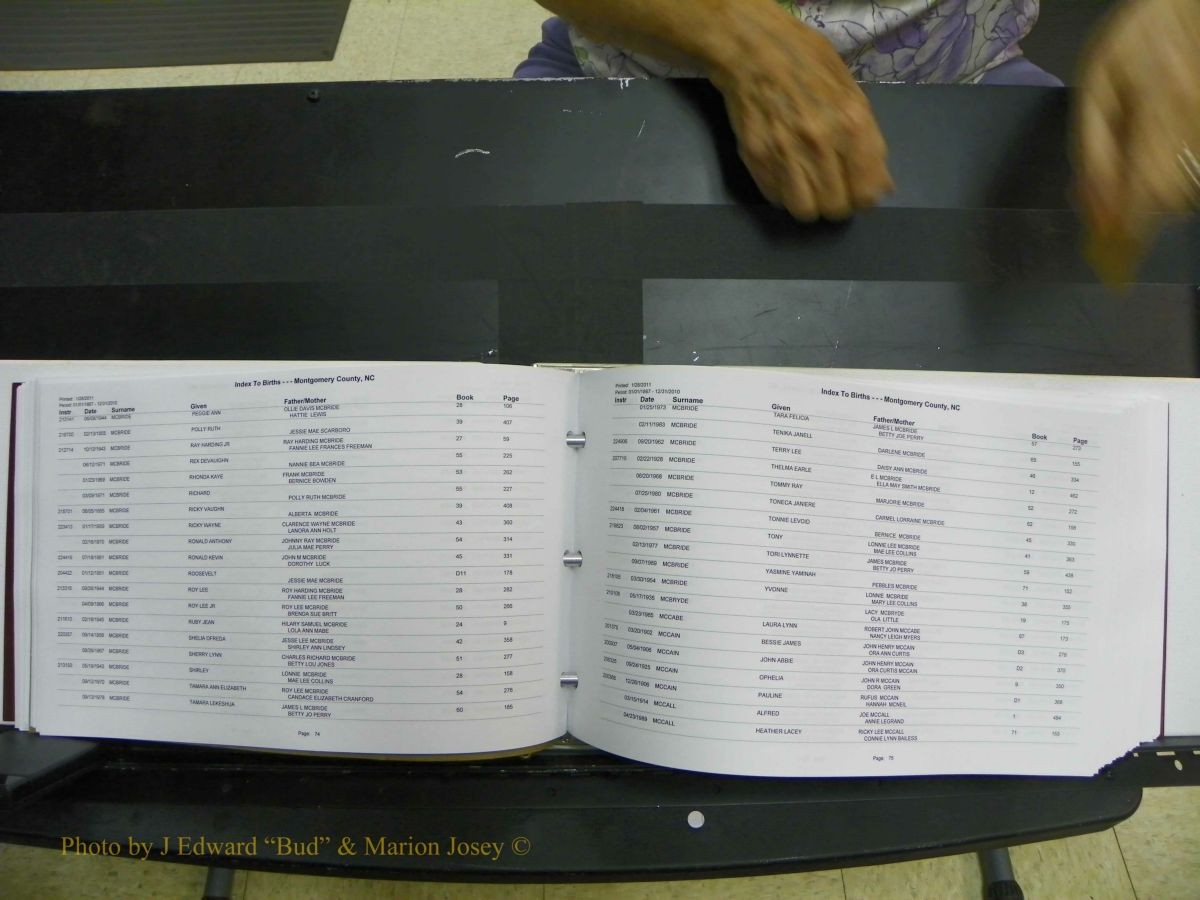 Printed: 1/28/2011
Period: 01/01/1987 - 12/31/2010
Index To Births - - - Montgomery County, NC
Instr Date Surname Given Father/Mother Book Page
MCBRIDE REGGIE ANN OLLIE DAVIS MCBRIDE 28 106
HATTIE LEWIS
MCBRIDE POLLY RUTH 39 407
JESSIE MAE SCARBORO
212714 10/12/1943 MCBRIDE RAY HARDING JR RAY HARDING MCBRIDE 27 59
FANNIE LEE FRANCES FREEMAN
06/12/1971 MCBRIDE REX DEVAUGHN 55 225
NANNIE BEA MCBRIDE
01/23/1969 MCBRIDE RHONDA KAYE FRANK MCBRIDE 53 262
BERNICE BOWDEN
03/09/1971 MCBRIDE RICHARD 55 227
POLLY RUTH MCBRIDE
MCBRIDE RICKY VAUGHN 39 408
ALBERTA MCBRIDE
MCBRIDE RICKY WAYNE CLARENCE WAYNE MCBRIDE 43 360
LANORA ANN HOLT
02/16/1970 MCBRIDE RONALD ANTHONY JOHNNY RAY MCBRIDE 54 314
JULIA MAE PERRY
MCBRIDE RONALD KEVIN JOHN M MCBRIDE 45 331
DOROTHY LUCK
MCBRIDE ROOSEVELT D11 178
JESSIE MAE MCBRIDE
MCBRIDE ROY LEE ROY HARDING MCBRIDE 28 282
FANNIE LEE FREEMAN
04/09/1966 MCBRIDE ROY LEE JR ROY LEE MCBRIDE 50 266
BRENDA SUE BRITT
MCBRIDE RUBY JEAN HILARY SAMUEL MCBRIDE 24 9
LOLA ANN MABE
MCBRIDE SHELIA DFREDA JESSE LEE MCBRIDE 42 358
SHIRLEY ANN LINDSEY
MCBRIDE SHERRY LYNN CHARLES RICHARD MCBRIDE 51 277
BETTY LOU JONES
MCBRIDE SHIRLEY LONNIE MCBRIDE 28 158
MAE LEE COLLINS
MCBRIDE TAMARA ANN ELIZABETH ROY LEE MCBRIDE 54 276
CANDACE ELIZABETH CRANFORD
MCBRIDE TAMARA LEKESHUA JAMES L MCBRIDE 60 185
BETTY JO PERRY
Page: 74
Printed: 1/28/2011
Period: 01/01/1987 - 12/31/2010
Index To Births - - - Montgomery County, NC
Instr Date Surname Given Father/Mother Book Page
01/25/1973 MCBRIDE TARA FELICIA JAMES L MCBRIDE 57 273
BETTY JOE PERRY
02/11/1983 MCBRIDE TENIKA JANELL 65 155
DARLENE MCBRIDE
224906 09/20/1962 MCBRIDE TERRY LEE 46 334
DAISY ANN MCBRIDE
02/22/1928 MCBRIDE THELMA EARLE E L MCBRIDE 12 462
ELLA MAY SMITH MCBRIDE
06/20/1966 MCBRIDE TOMMY RAY 52 272
MARJORIE MCBRIDE
07/25/1980 MCBRIDE TONECA JANIERE 62
CARMEL LORRAINE MCBRIDE
224418 02/04/1961 MCBRIDE TONNIE LEVOID 45 330
BERNICE MCBRIDE
08/02/1957 MCBRIDE TONY LONNIE LEE MCBRIDE 41 363
MAE LEE COLLINS
02/13/1977 MCBRIDE TORI LYNNETTE JAMES MCBRIDE 59 438
BETTY JO PERRY
09/07/1989 MCBRIDE YASMINE YAMINAH 71
PEBBLES MCBRIDE
03/30/1954 MCBRIDE YVONNE LONNIE MCBRIDE 38
MARY LEE COLLINS
05/17/1935 MCBRYDE LACY MCBRYDE 19 175
OLA LITTLE
03/23/1985 MCCABE LAURA LYNN ROBERT JOHN MCCABE 67 173
NANCY LEIGH MYERS
03/20/1902 MCCAIN BESSIE JAMES JOHN HENRY MCCAIN D3
ORA ANN CURTIS
05/04/1906 MCCAIN JOHN ABBIE JOHN HENRY MCCAIN D2
ORA CURTIS MCCAIN
09/24/1925 MCCAIN OPHELIA JOHN R MCCAIN 9
DORA GREEN
12/26/1906 MCCAIN PAULINE RUFUS MCCAIN D1
HANNAH MCNEIL
03/15/1914 MCCALL ALFRED JOE MCCALL 1 494
ANNIE LEGRAND
04/23/1989 MCCALL HEATHER LACEY RICKY LEE MCCALL 71
CONNIE LYNN BAILESS
Page: 75
Photo by J Edward “Bud” & Marion Josey ©